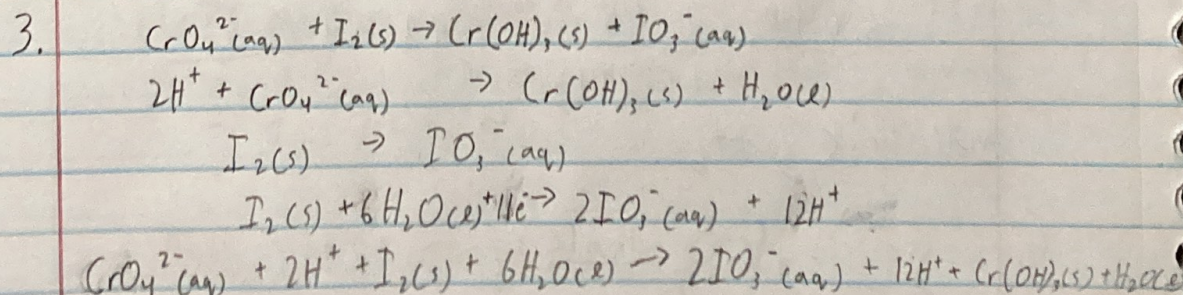 3. CrO₄²⁻(aq) + I₂(s) → Cr(OH)₃(s) + IO₃⁻(aq)
2H⁺ + CrO₄²⁻(aq) → Cr(OH)₃(s) + H₂O(l)
I₂(s) → IO₃⁻(aq)
I₂(s) + 6H₂O(l) + 11e⁻ → 2IO₃⁻(aq) + 12H⁺
CrO₄²⁻(aq) + 2H⁺ + I₂(s) + 6H₂O(l) → 2IO₃⁻(aq) + 12H⁺ + Cr(OH)₃(s) + H₂O(l